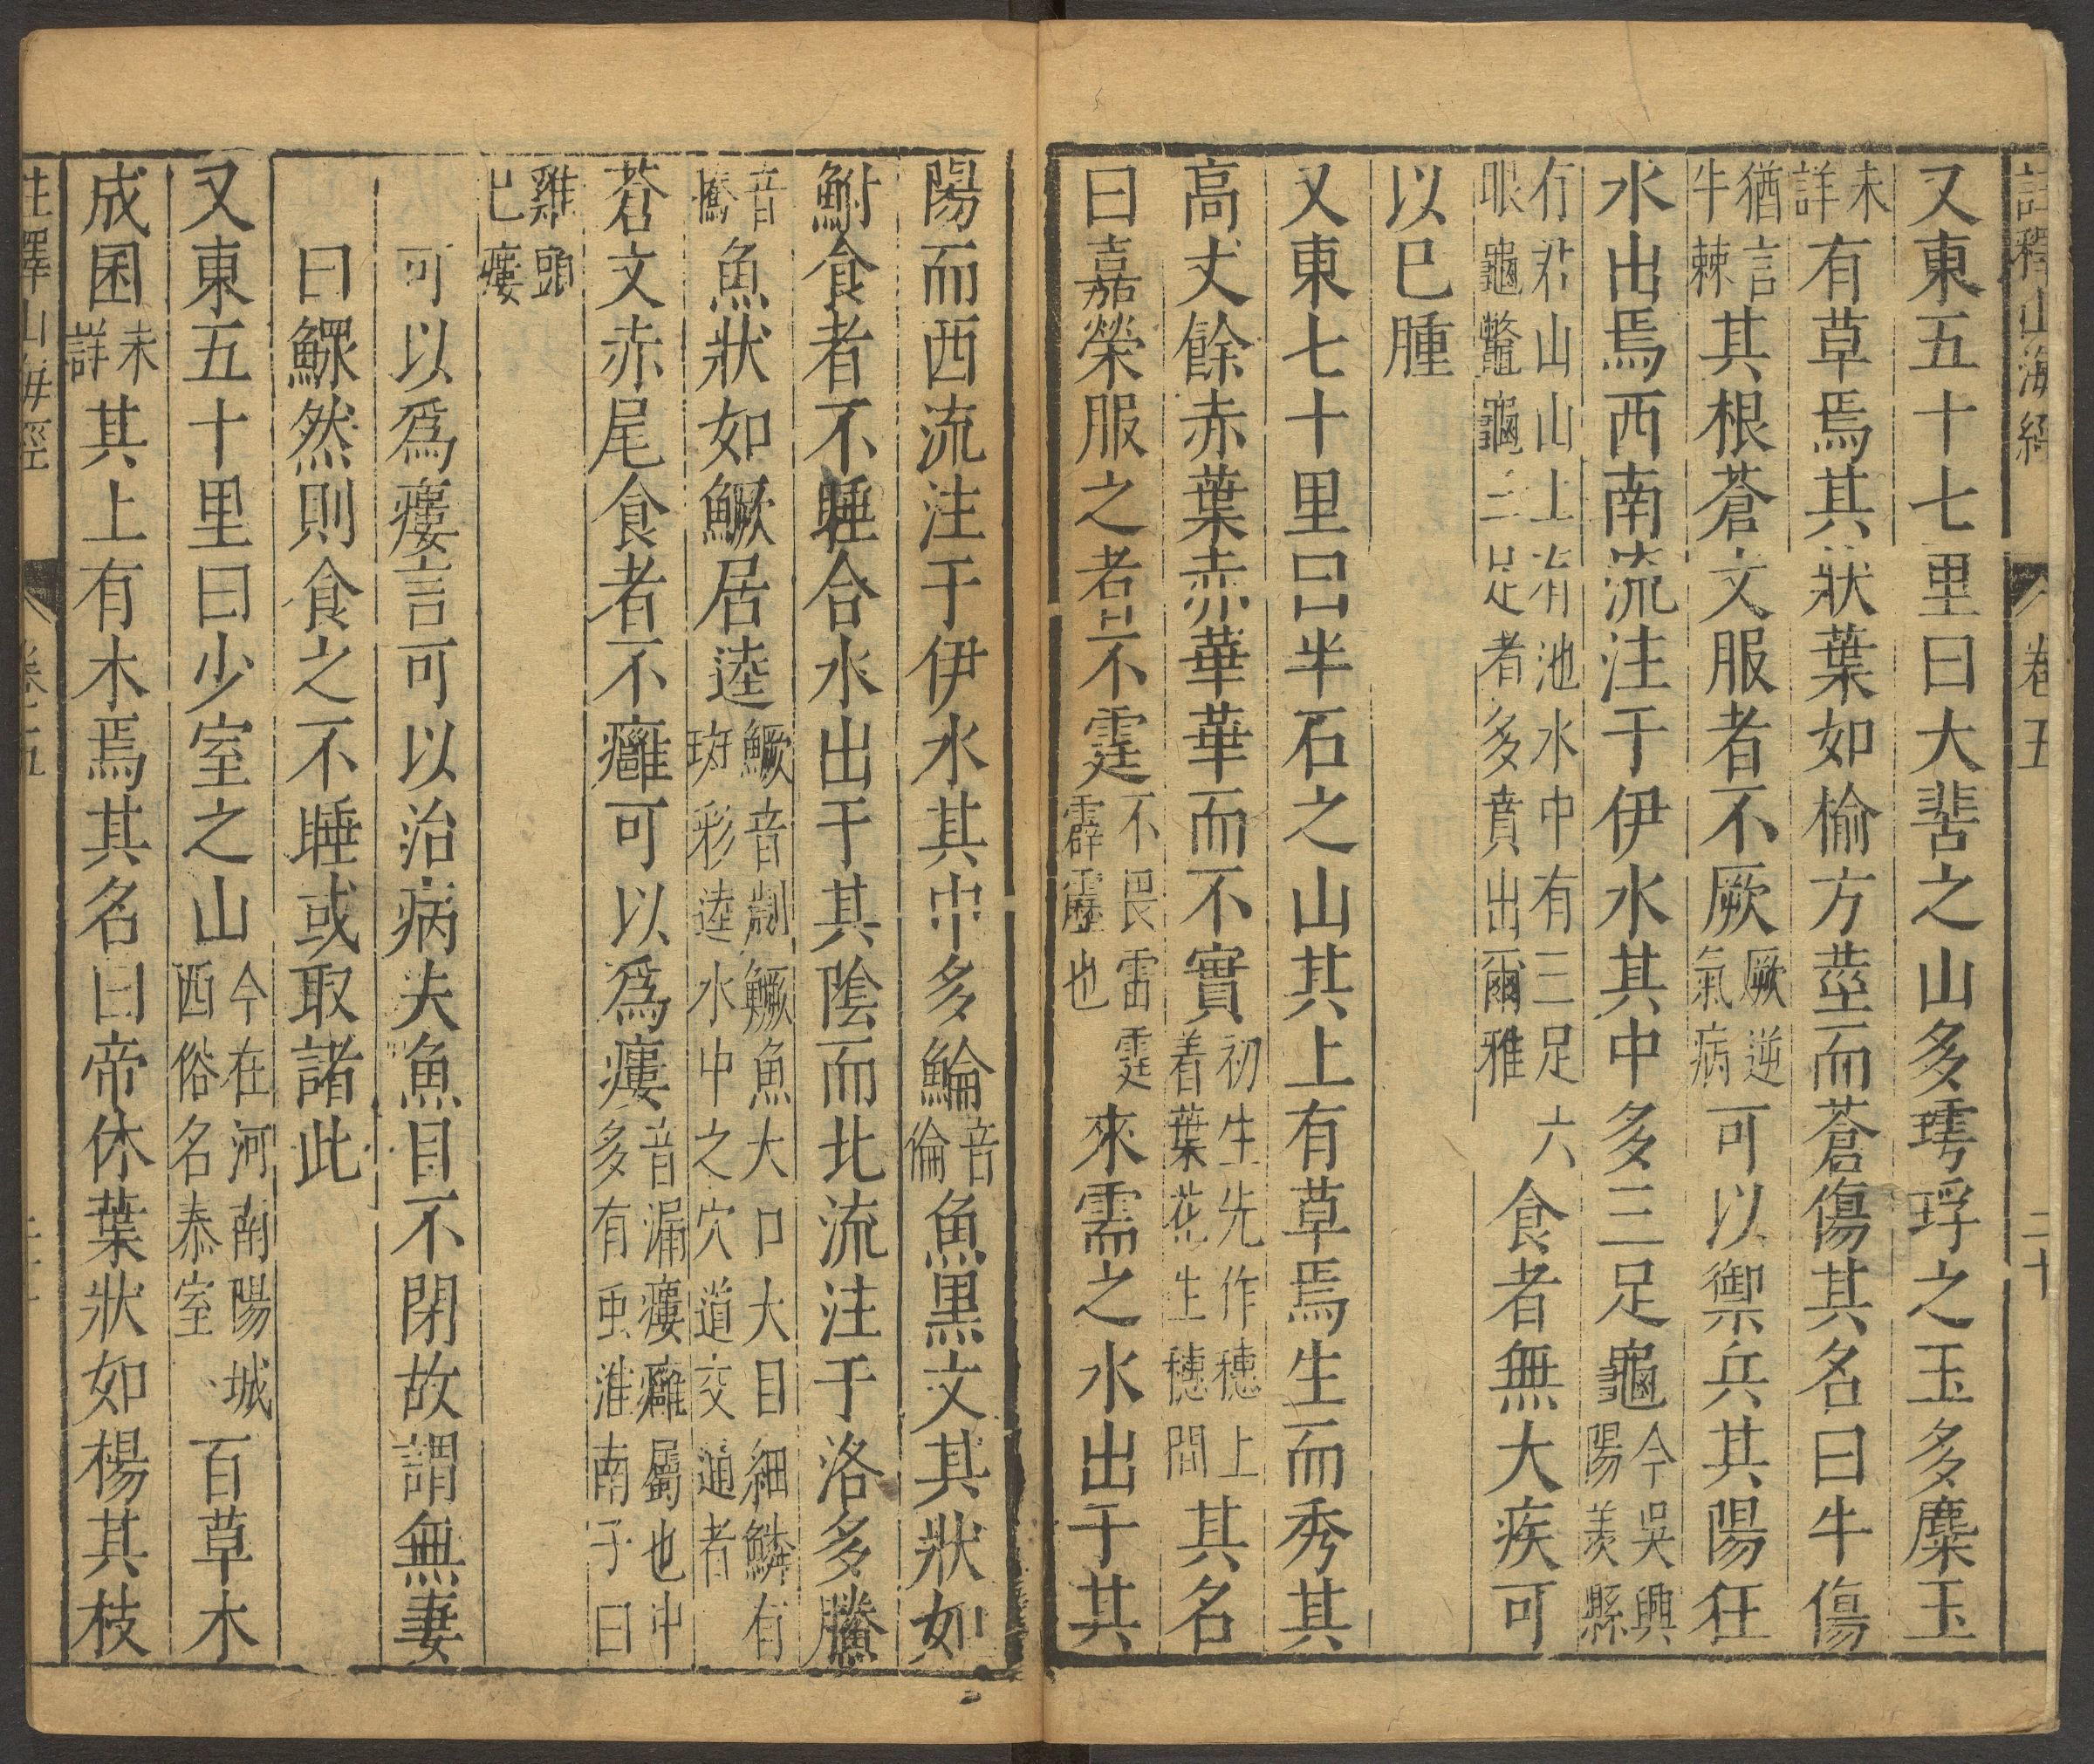 註釋山海經 卷五 二十
又東五十七里曰大𩇯之山多㻬琈之玉多麋玉
未詳有草焉其狀葉如榆方莖而蒼傷其名曰牛傷
猶言牛棘其根蒼文服者不厥厥逆氣病可以禦兵其陽狂
水出焉西南流注于伊水其中多三足龜今吳興陽羨縣
有君山山上有池水中有三足六眼龜鼈龜三足者多賁出爾雅食者無大疾可
以已腫
又東七十里曰半石之山其上有草焉生而秀其
高丈餘赤葉赤華華而不實初生先作穗上着葉花生穗間其名
曰嘉榮服之者不霆不畏雷霆霹靂也來需之水出于其
陽而西流注于伊水其中多鯩音倫魚黑文其狀如
鮒食者不睡合水出于其陰而北流注于洛多䲢
音騰魚狀如鱖居逵鱖音劌鱖魚大口大目細鱗有斑彩逵水中之穴道交通者
蒼文赤尾食者不癰可以爲瘻音漏瘻癰屬也中多有虫淮南子曰
雞頭已瘻
可以爲瘻言可以治病夫魚目不閉故謂無妻
曰鰥然則食之不睡或取諸此
又東五十里曰少室之山今在河南陽城西俗名泰室百草木
成囷未詳其上有木焉其名曰帝休葉狀如楊其枝
註釋山海經 卷五